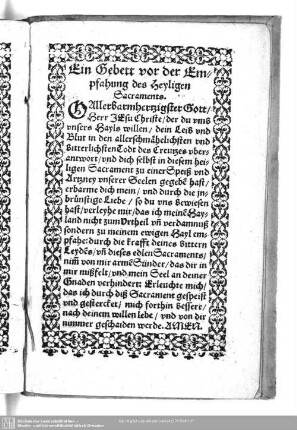 Ein Gebett vor der Em-
pfahung des Heyligen
Sacraments.
O Allerbarmhertzigster Gott/
Herr JEsu Christe/ der du vmb
vnsers Hayls willen/ dein Leib vnd
Blut in den allerschmählichisten vnd
bitterlichsten Todt des Creutzes vber-
antwort/ vnd dich selbst in diesem hei-
ligen Sacrament zu einer Speiß vnd
Artzney vnserer Seelen gegebē hast/
erbarme dich mein/ vnd durch die in-
brünstige Liebe/ so du vns bewiesen
hast/ verleyhe mir/ das ich meinē Hay-
land nicht zum Vrtheil vñ verdamnuß
sondern zu meinem ewigen Hayl em-
pfahe: durch die krafft deines bittern
Leydēs/ vñ dieses edlen Sacraments/
nim̄ von mir armē Sünder/ das dir in
mir mißfelt/ vnd mein Seel an deiner
Gnaden verhindert: Erleuchte mich/
das ich durch diß Sacrament gespeist
vnd gestercket/ mich forthin bessere/
nach deinem willen lebe/ vnd von dir
nimmer geschaiden werde. AMEN.